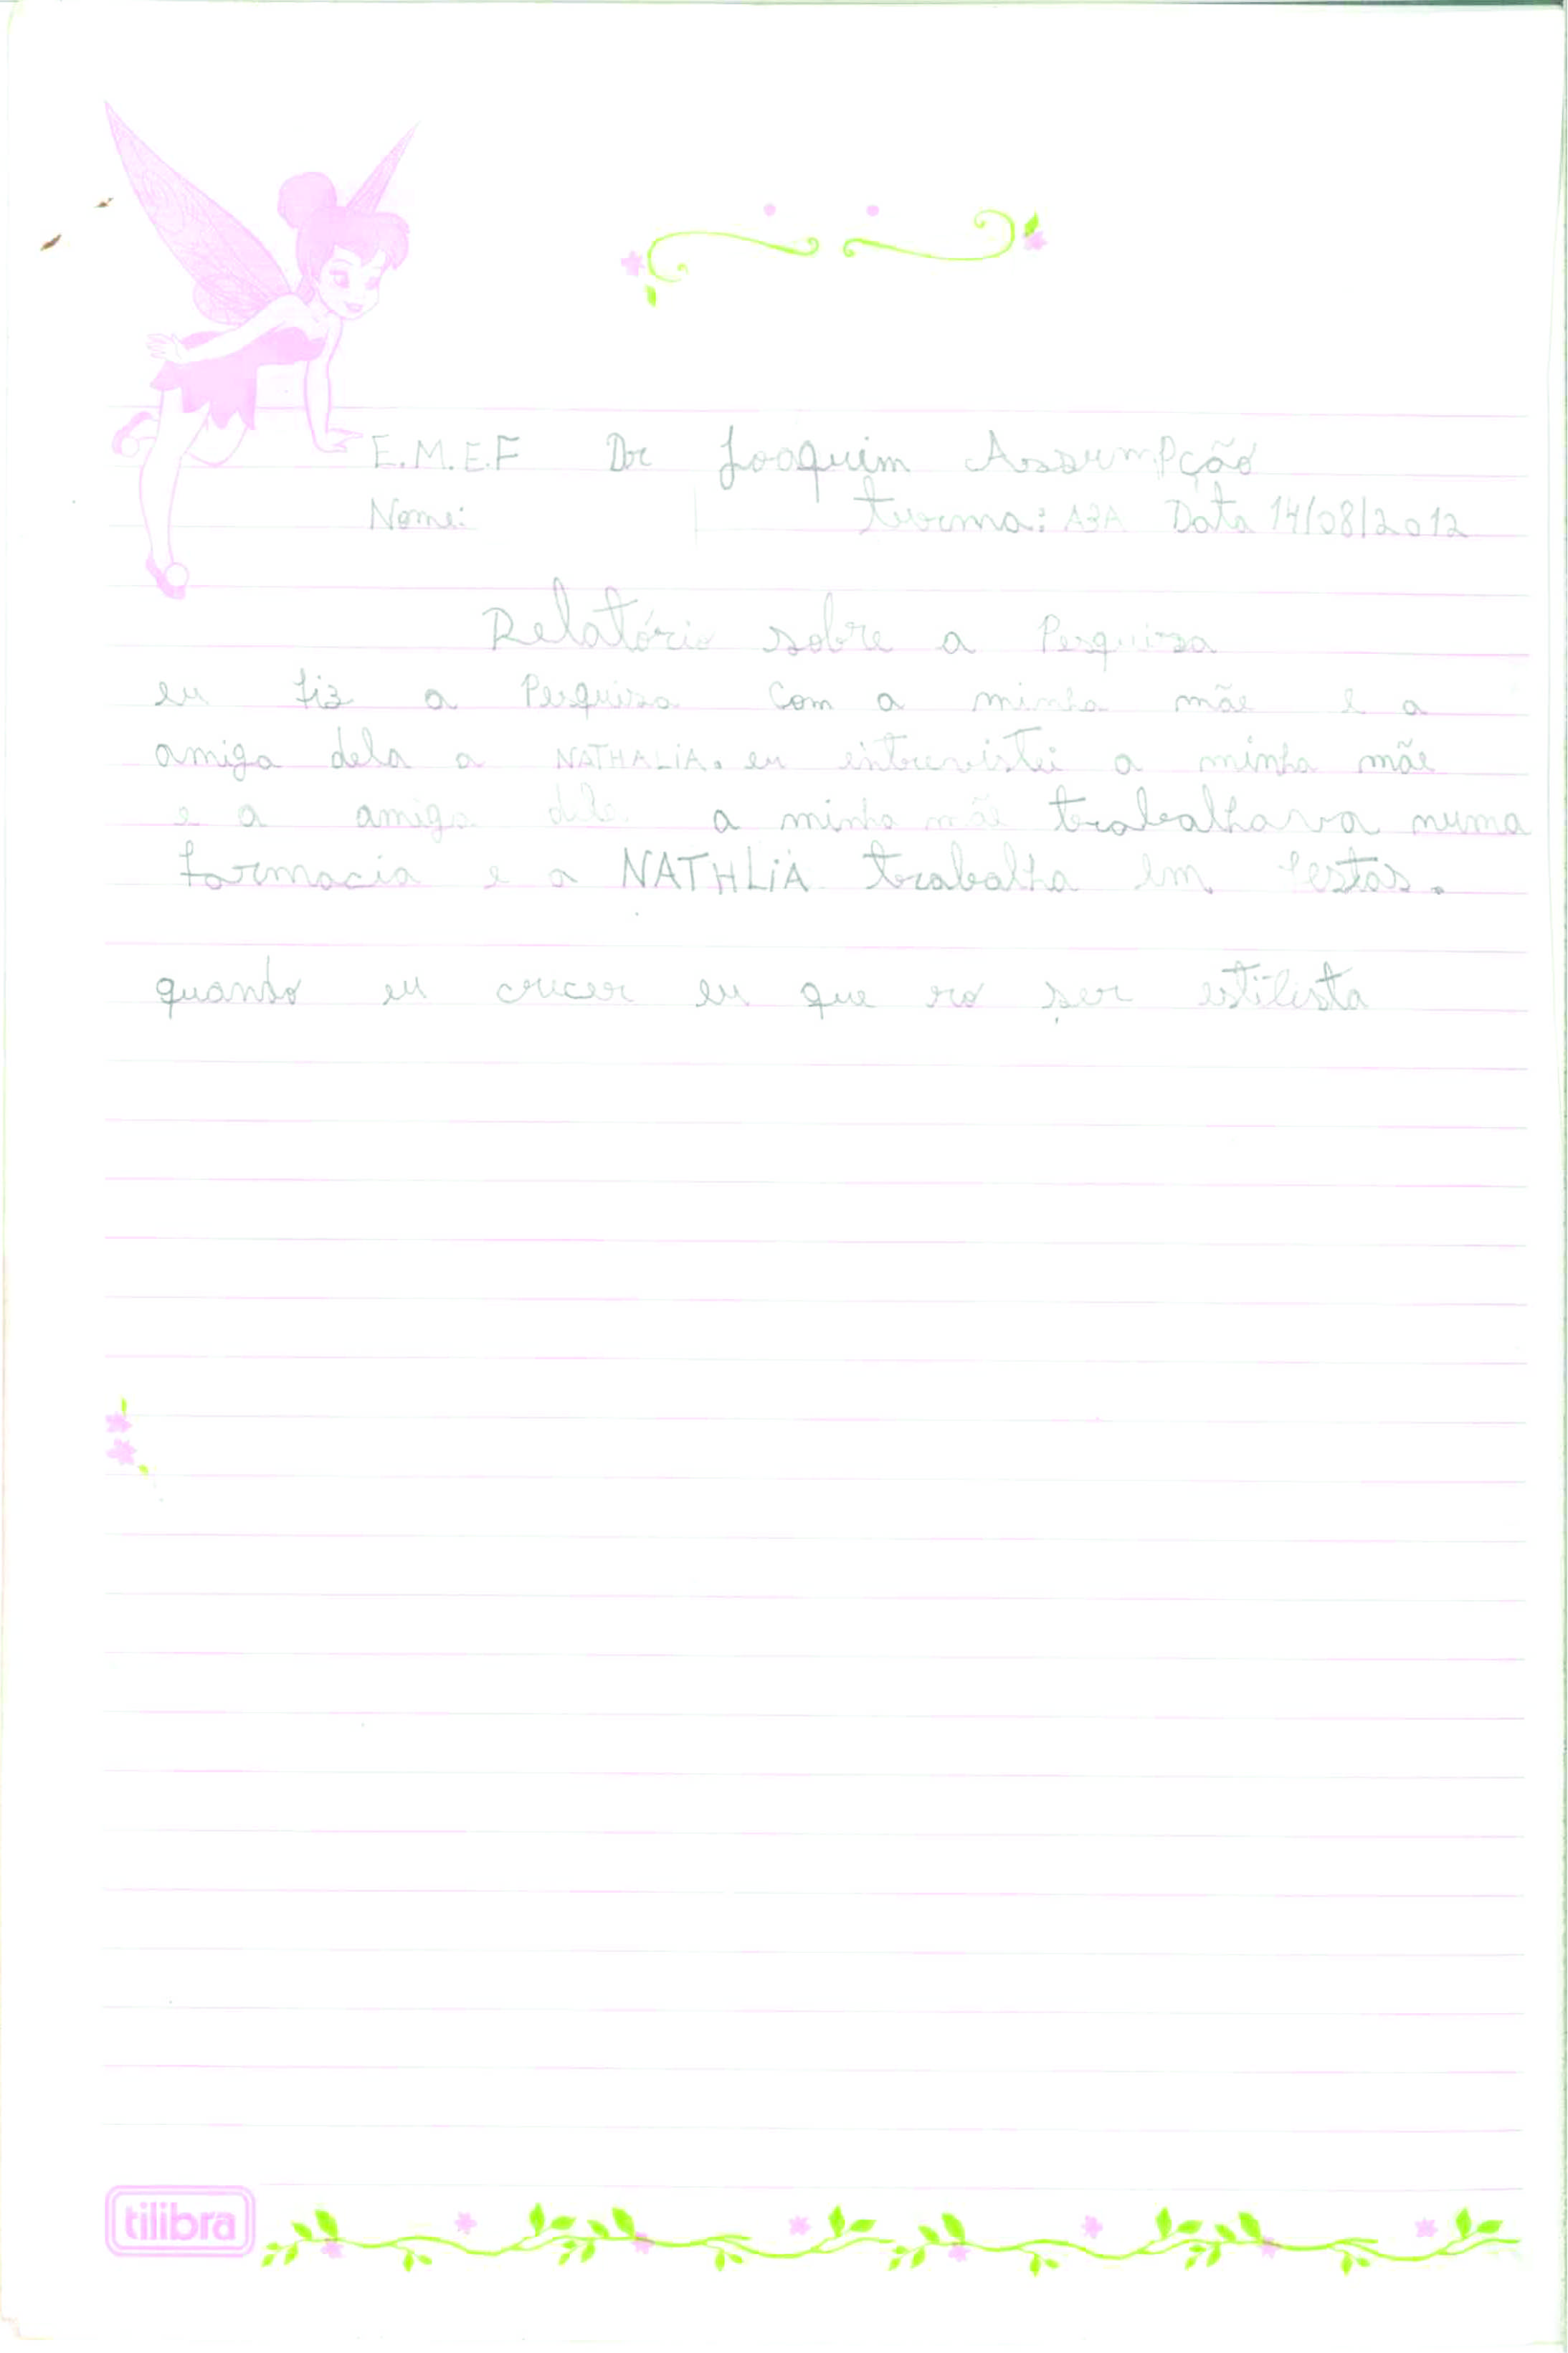 E.M.E.F Dr Joaquim AssumPção
Nome: turma: A3A Data 14/08/2012
Relatório sobre a Pesquisa
eu fiz a Pesquisa Com a minha mãe e a
amiga dela a NATHALIA. eu entrevistei a minha mãe
e a amiga dela a minha mãe trabalhava numa
farmacia e a NATHLIA trabalha em festas.
quando eu crecer eu que ro ser estilista
tilibra